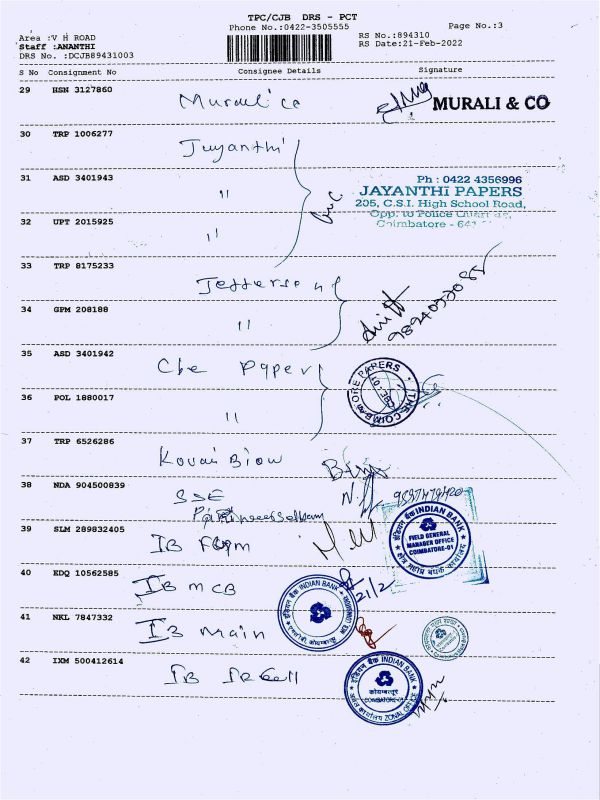 TPC/CJB DRS - PCT
Phone No.:0422-3505555
Page No.:3
Area :V H ROAD
RS No.:894310
Staff :ANANTHI
RS Date:21-Feb-2022
DRS No. :DCJB89431003
S No Consignment No Consignee Details Signature
29 HSN 3127860 Murali co MURALI & CO
30 TRP 1006277 Jayanthi
31 ASD 3401943 "
Ph : 0422 4356996
JAYANTHI PAPERS
205, C.S.I. High School Road,
Opp. to Police
Coimbatore - 641
32 UPT 2015925 "
33 TRP 8175233 Jefferson
34 GPM 208188 "
35 ASD 3401942 Cbe Papers
THE COIMBATORE PAPERS
CBE-01
36 POL 1880017 "
37 TRP 6526286 Kovai
38 NDA 904500839 SSE
39 SLM 289832405 IB
इंडियन बैंक INDIAN BANK
FIELD GENERAL
MANAGER OFFICE
COIMBATORE-01
40 EDQ 10562585 IB MCB
21/2
इंडियन बैंक INDIAN BANK
41 NKL 7847332 IB main
42 IXM 500412614 IB
इंडियन बैंक INDIAN BANK
कोयम्बत्तूर
COIMBATORE
ZONAL OFFICE